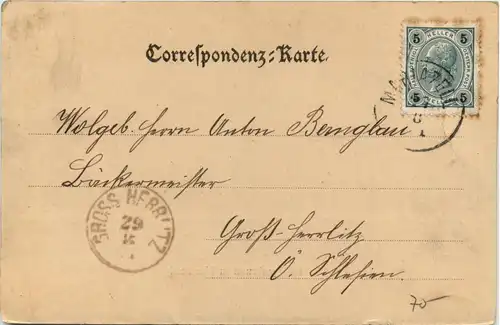 Correspondenz-Karte.
5 HELLER 5
5 HELLER 5
Wolgeb. Herrn Anton Bernglau
Bäckermeister
GROSS HERRLITZ
29
Groß-Herrlitz
Ö. Schlesien.
70